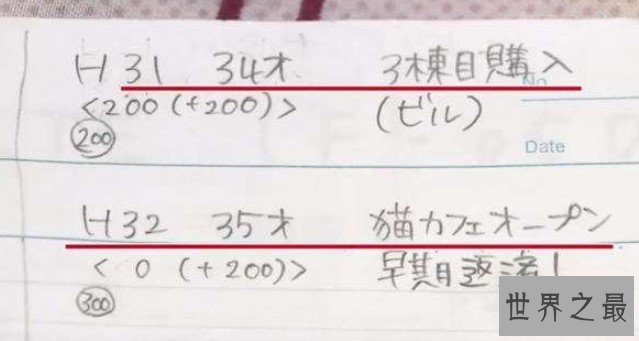 H31 34才 3棟目購入
No.
<200(+200)> (ビル)
200
Date
H32 35才 猫カフェオープン
<0(+200)> 早期返済!
300
世界之最